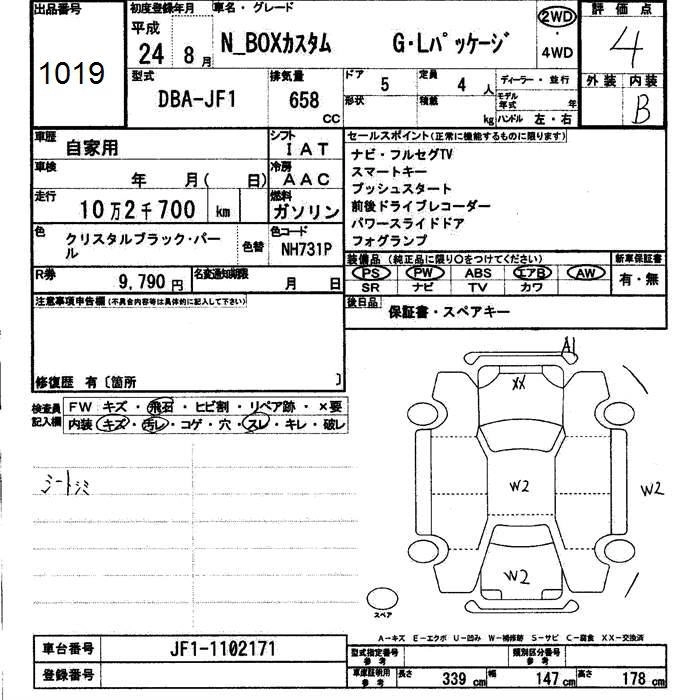 出品番号
1019
初度登録年月
平成
24 8月
車名・グレード
N_BOXカスタム G・Lパッケージ
2WD
・
4WD
評価点
4
外装 内装
B
型式
DBA-JF1
排気量
658
cc
ドア
5
定員
4 人
形状
積載
kg
ディーラー・並行
モデル年式 年
ハンドル 左・右
車歴
自家用
シフト
IAT
車検
年 月( 日)
冷房
AAC
走行
10万2千700 km
燃料
ガソリン
色
クリスタルブラック・パール
色替
色コード
NH731P
R券
9,790 円
名変通知期限
月 日
セールスポイント(正常に機能するものに限ります)
ナビ・フルセグTV
スマートキー
プッシュスタート
前後ドライブレコーダー
パワースライドドア
フォグランプ
装備品(純正品に限り〇をつけてください)
新車保証書
PS PW ABS エアB AW
SR ナビ TV カワ
有・無
後日品
保証書・スペアキー
注意事項申告欄(不具合内容等は具体的に記入して下さい)
修復歴 有〔箇所 〕
検査員記入欄
FW キズ・飛石・ヒビ割・リペア跡・×要
内装 キズ・汚レ・コゲ・穴・スレ・キレ・破レ
シートシミ
A1
XX
W2
W2
W2
スペア
A-キズ E-エクボ U-凹み W-補修跡 S-サビ C-腐食 XX-交換済
車台番号
JF1-1102171
登録番号
型式指定番号
参考
類別区分番号
参考
車庫証明用
参考
長さ 339 cm
幅 147 cm
高さ 178 cm